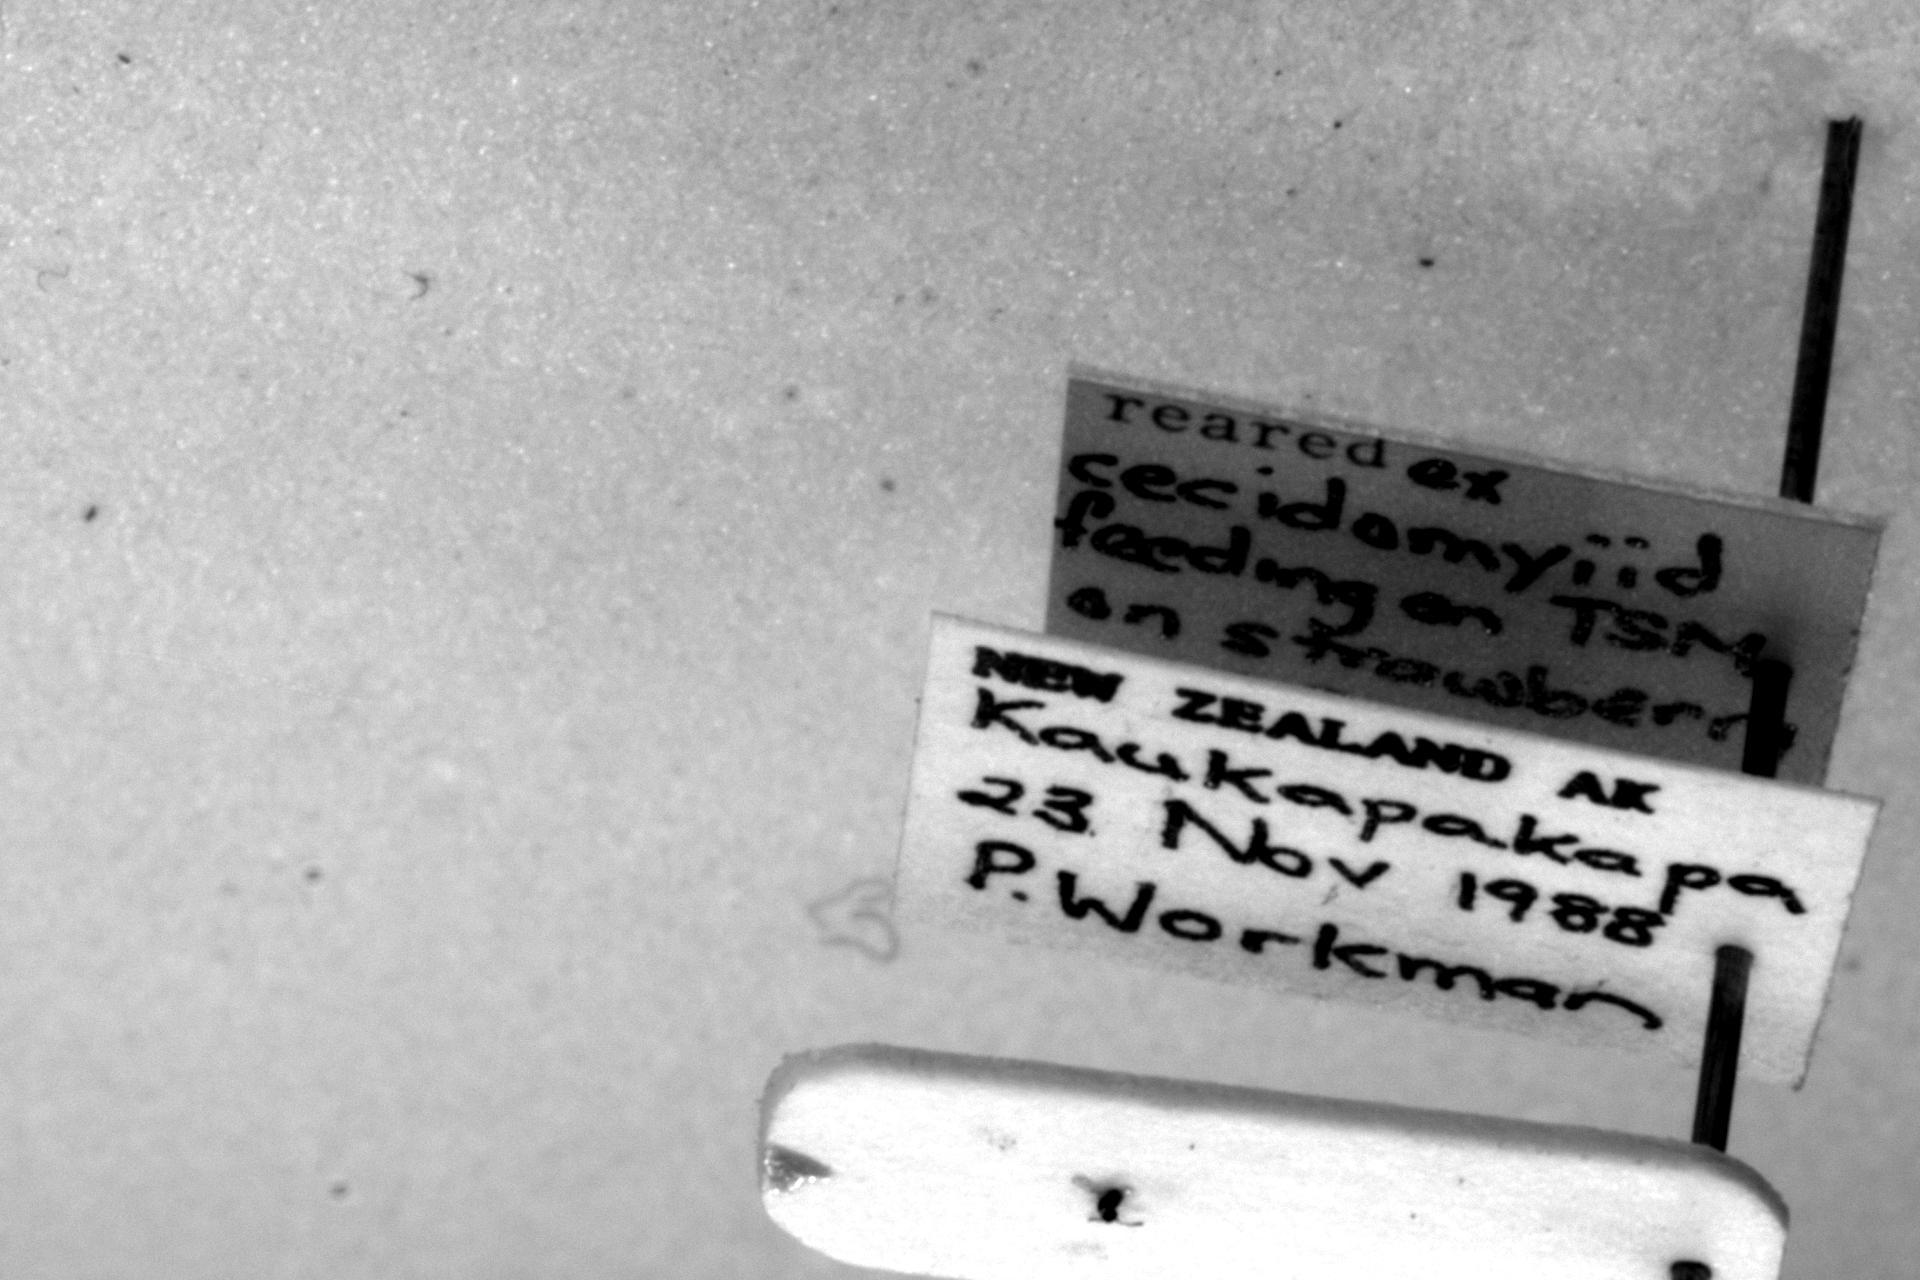 reared ex
cecidomyiid
feeding on TSM
on strawberry
NEW ZEALAND AK
Kaukapakapa
23 Nov 1988
P. Workman